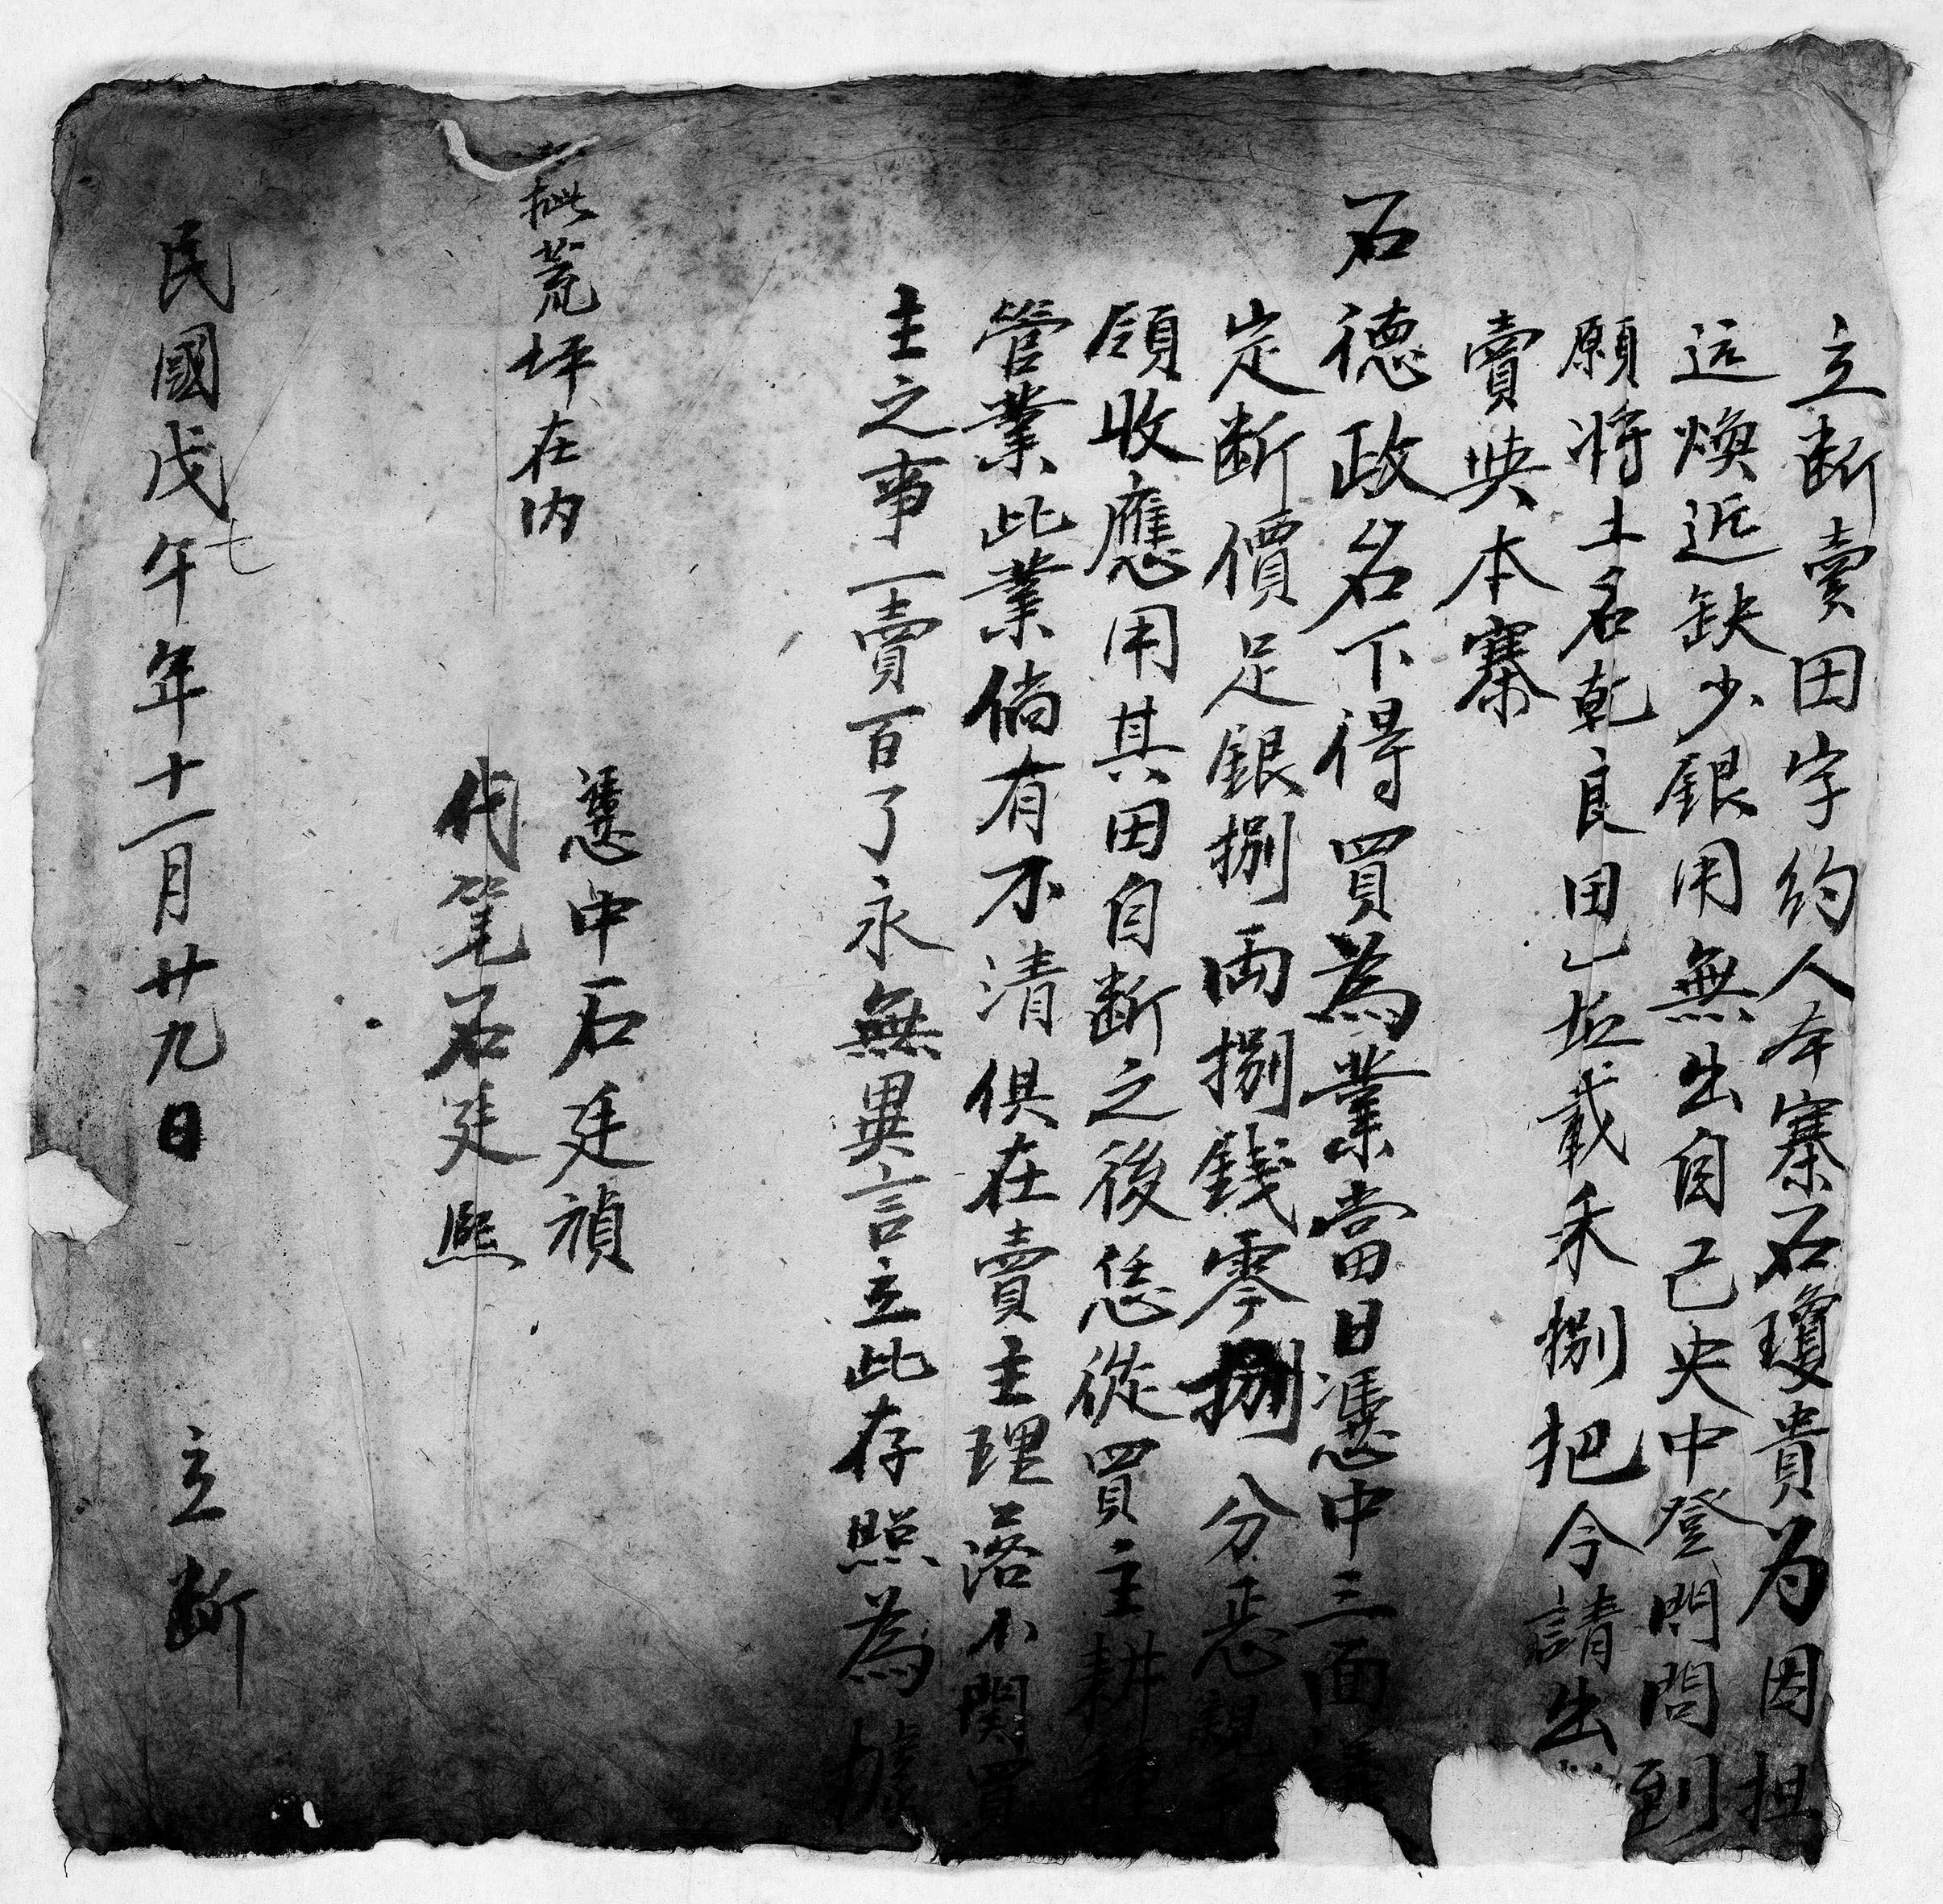 立断賣田字約人本寨石瓊貴为因担
远煥近缺少銀用無出自己央中登門問到
愿将土名乾良田乚坵載禾捌把今請出
賣典本寨
石德政名下得買為業當日憑中三面議
定断價足銀捌両捌錢零捌分正親
領收應用其田自断之後恁從買主耕種
管業此業倘有不清俱在賣主理落不関買
主之事一賣百了永無異言立此存照為據
批荒坪在内
憑中石廷禎
代笔石廷熙
民國戊午七年十一月廿九日 立断